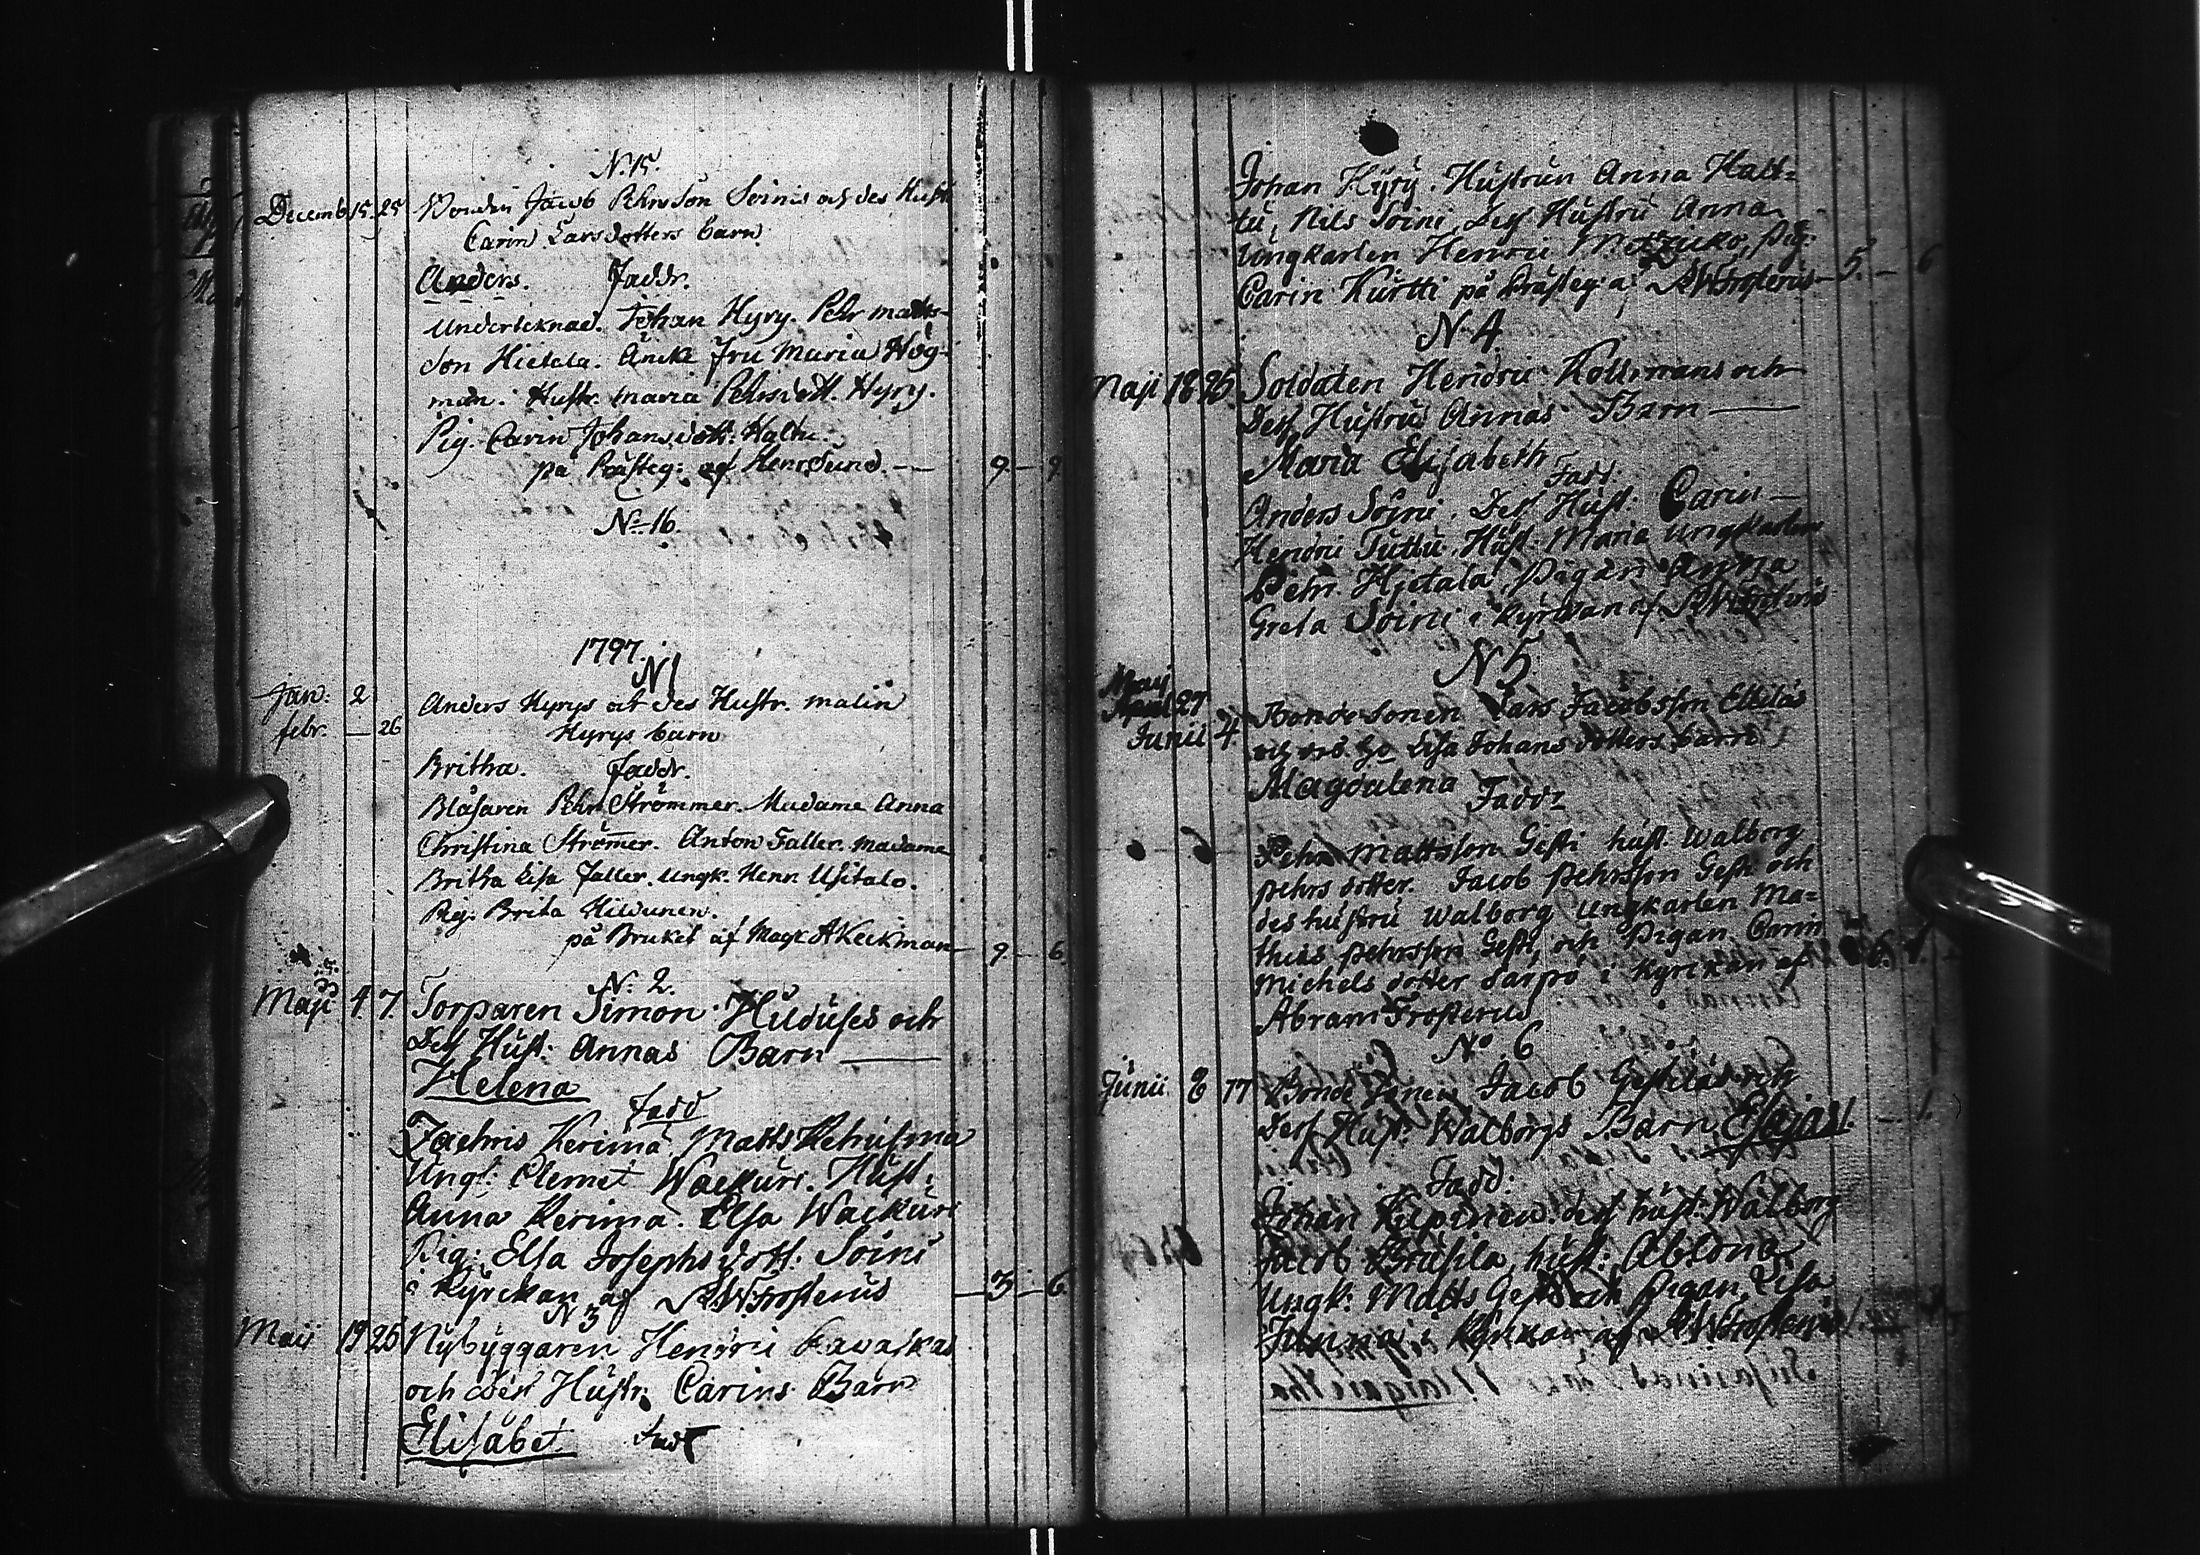 N. 15.
Decemb 15. 25 Bonden Jacob Pehrsson Soinis och des Hustr
Carin Larsdotters barn
Anders. Faddr.
Undertecknad. Johan Hyry. Pehr Matts-
son Hietala. Änck Fru Maria Hög-
man. Hustr. Maria Pehrsdott. Hyry.
Pig. Carin Johansdott: Haltu
på Prästeg: af Henr Sund. — 9 — 9
No 16.
1797.
N 1
Jan: 2 Anders Hyrys och des Hustr. Malin
febr. — 26 Hyrys barn
Britha. Faddr.
Blåsaren Pehr Strömmer. Madame Anna
Christina Strömer. Anton Faller. Madame
Britha Lisa Faller. Ungk. Henr. Usitalo.
Pig. Brita Hildunen.
på Bruket af Mag. A Keckman — 9 — 6.
N. 2.
Maji 4 7. Torparen Simon Huduses och
Dess Hust: Annas Barn —
Helena
Fadd
Zachris Kerima Matts Rehusma
Ungk: Clemet Wackuri. Hust:
Anna Kerima. Elsa Wackuri
Pig: Elsa Josephs dott: Soini
i kyrckan af AWFrosterus — 3 — 6.
N 3
Maii 19 25 Nybyggaren Henric Lavaskas
och dess Hustr: Carins Barn
Elisabet Fadd
Johan Hyry. Hustrun Anna Hatt-
tu, Nils Soini Dess Hustru Anna
Ungkarlen Henric Pig:
Carin Kurtti på Prästeg: af AWFrosterus — 5. — 6
N. 4
Maji 18 25 Soldaten Henric Kollmans och
Dess Hustrus Annas Barn —
Maria Elisabeth
Fadd.
Anders Soini. Dess Hust: Carin —
Henric Tuttu Hust: Maria Ungkarlen
Pehr Hietala, Pigan Anna
Greta Soini i kyrckan af AWFrosterus
N 5
Maij 27 Bonde sonen Lars Jacobsson Ettelas
Junii 4. Lisa Johans dotters barn
Magdalena Faddr
Pehr Mattsson Gesti hust. Walborg
Pehrs dotter. Jacob Pehrsson Gesti och
des hustru Walborg Ungkarlen Ma=
thias Pehrsson Gesti, och Pigan Carin
Michels dotter Sarpo i kyrckan af
Abram Frosterus
No. 6
Junii 8 17 Bonde Sonen Jacob Gestilas och
Dess Hust: Walborgs Barn Esajas. — 1.
Fadd:
Johan Kilpinen dess hust: Walborg
Jacob hust: Ablona
Ungk: Matts Gesti och Pigan Lisa
Junna i kyrckan af AWFrosterus